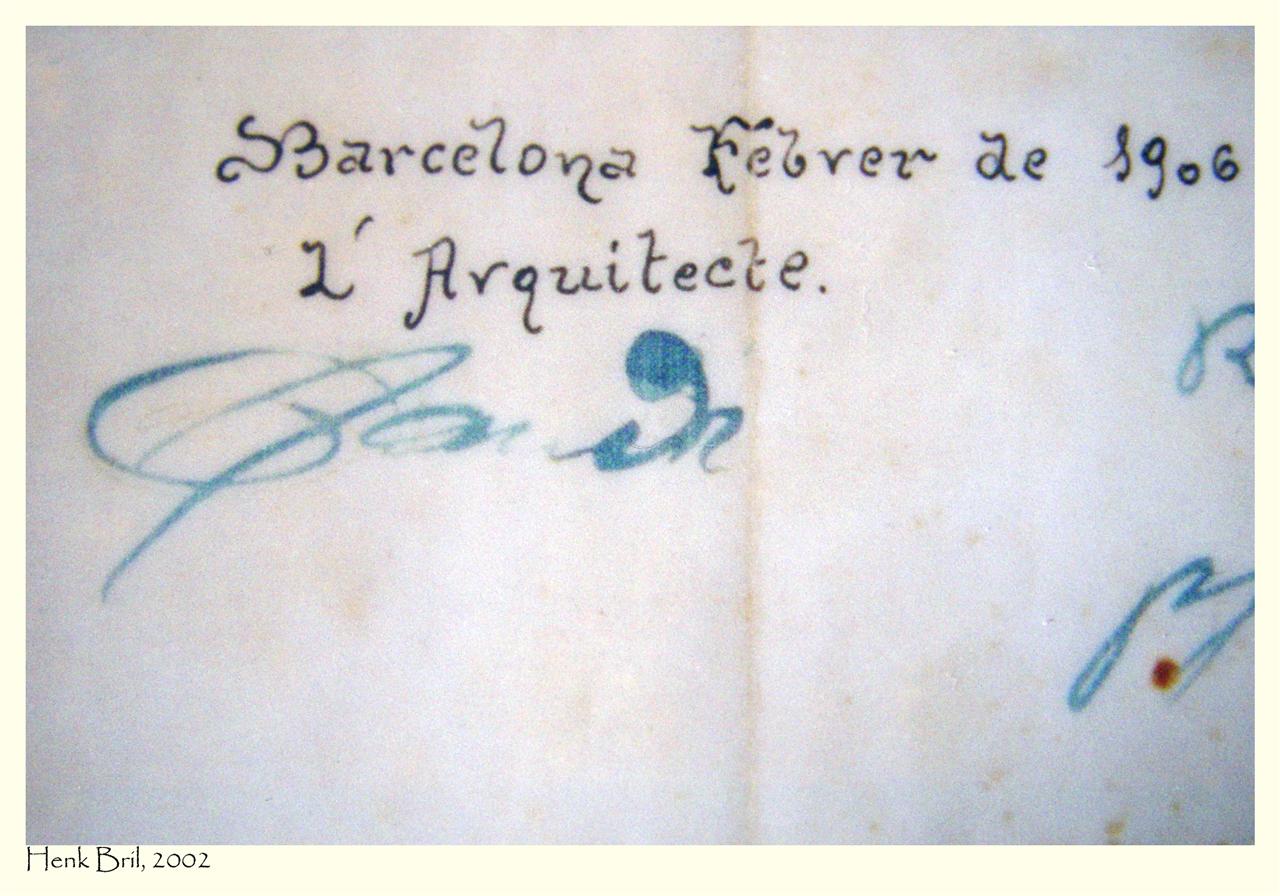 Barcelona Febrer de 1906
L' Arquitecte.
Gaudí
Henk Bril, 2002